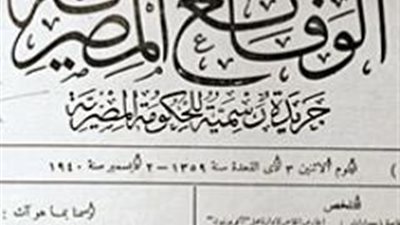 الوقائع المصرية
جريدة رسمية للحكومة المصرية
( اليوم الاثنين ٣ ذى القعدة سنة ١٣٥٩ – ٢ ديسمبر سنة ١٩٤٠
الملخص
اسما بما هو آت :